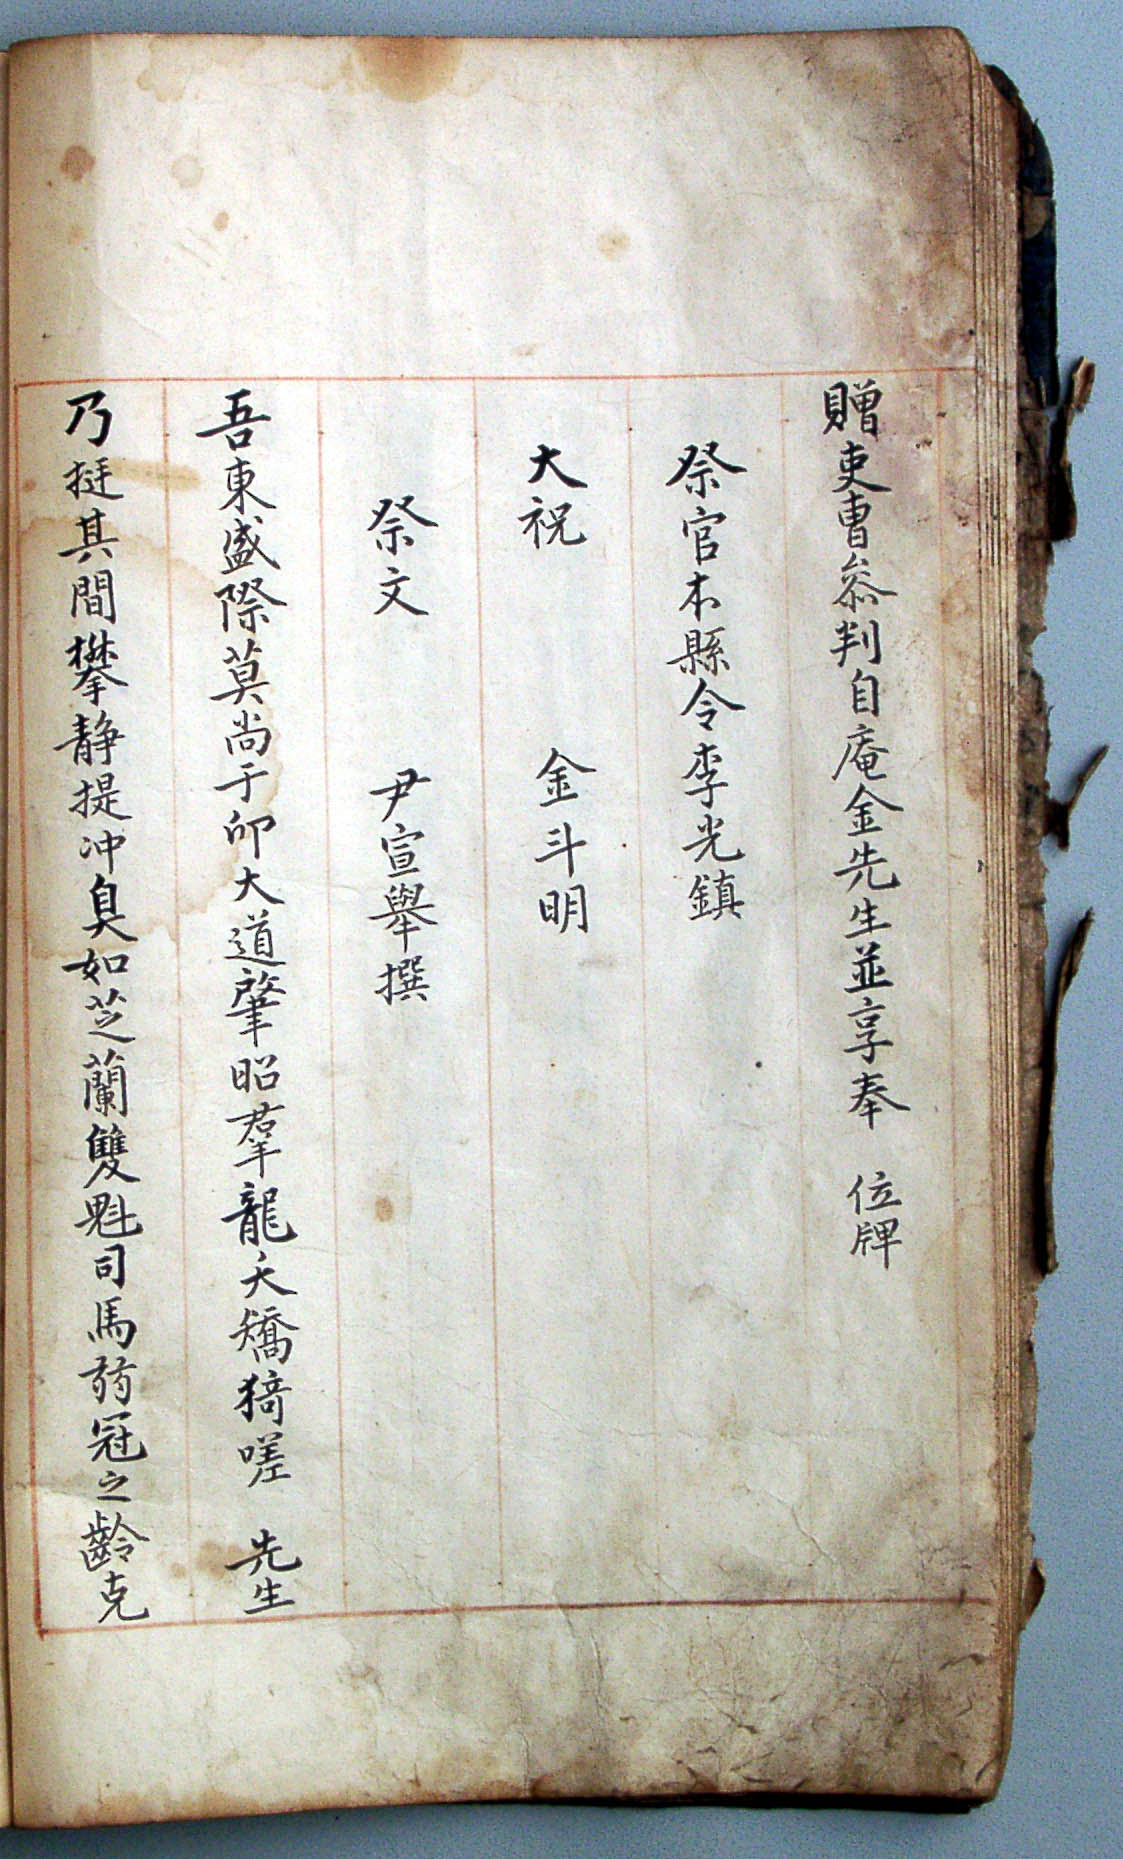 贈吏曹叅判自庵金先生並享奉 位牌
祭官本縣令李光鎮
大祝 金斗明
祭文 尹宣擧撰
吾東盛際莫尚于卯大道肇昭羣龍夭矯猗嗟 先生
乃挺其間攀靜提冲臭如芝蘭雙魁司馬弱冠之齡克